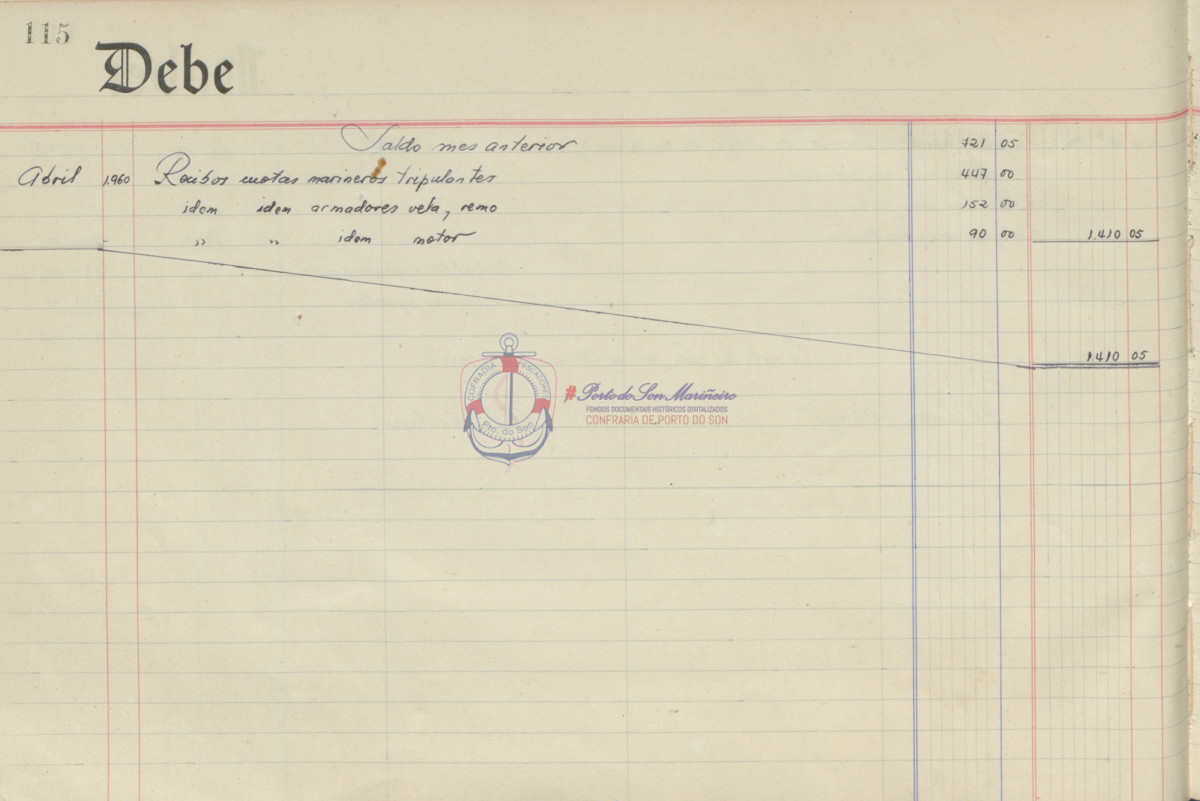 115
Debe
Saldo mes anterior 721 05
Abril 1.960 Recibos cuotas marineros tripulantes 447 00
idem idem armadores vela, remo 152 00
„ „ idem motor 90 00 1.410 05
1.410 05
COFRADIA PESCADORES
Pto. do Son
#Porto do Son Mariñeiro
FONDOS DOCUMENTAIS HISTÓRICOS DIXITALIZADOS
CONFRARÍA DE PORTO DO SON